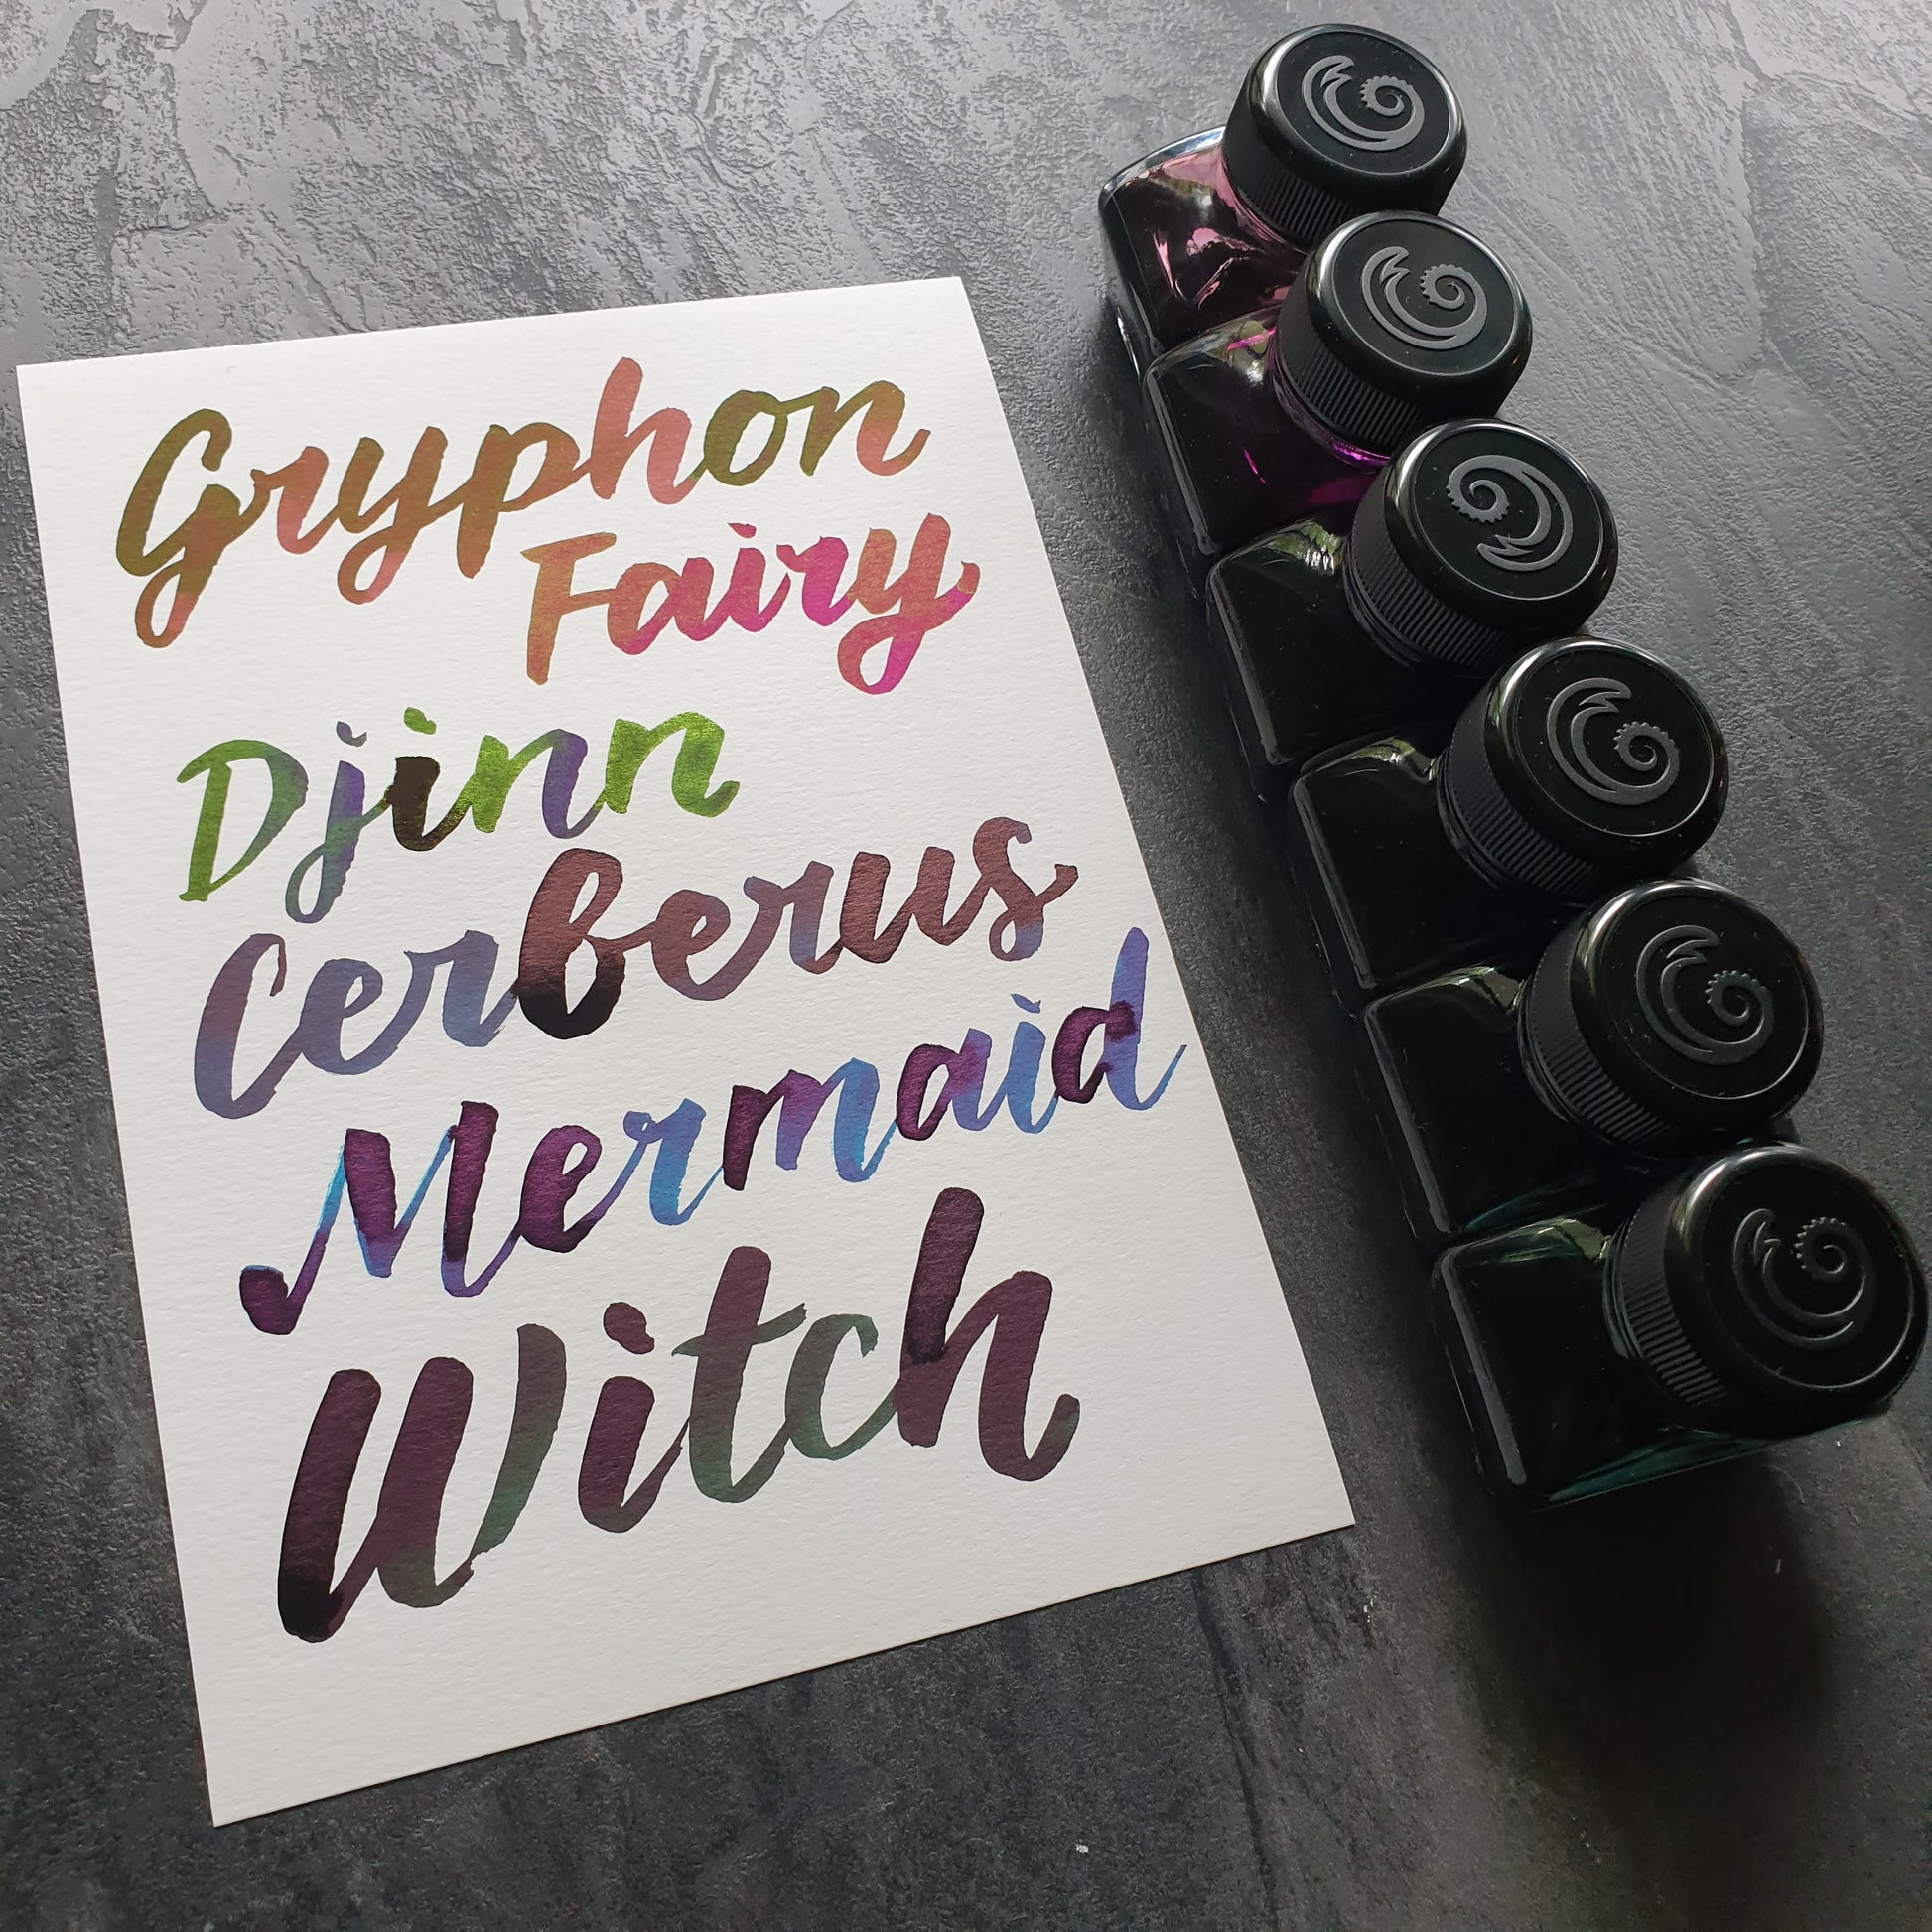 Gryphon
Fairy
Djinn
Cerberus
Mermaid
Witch